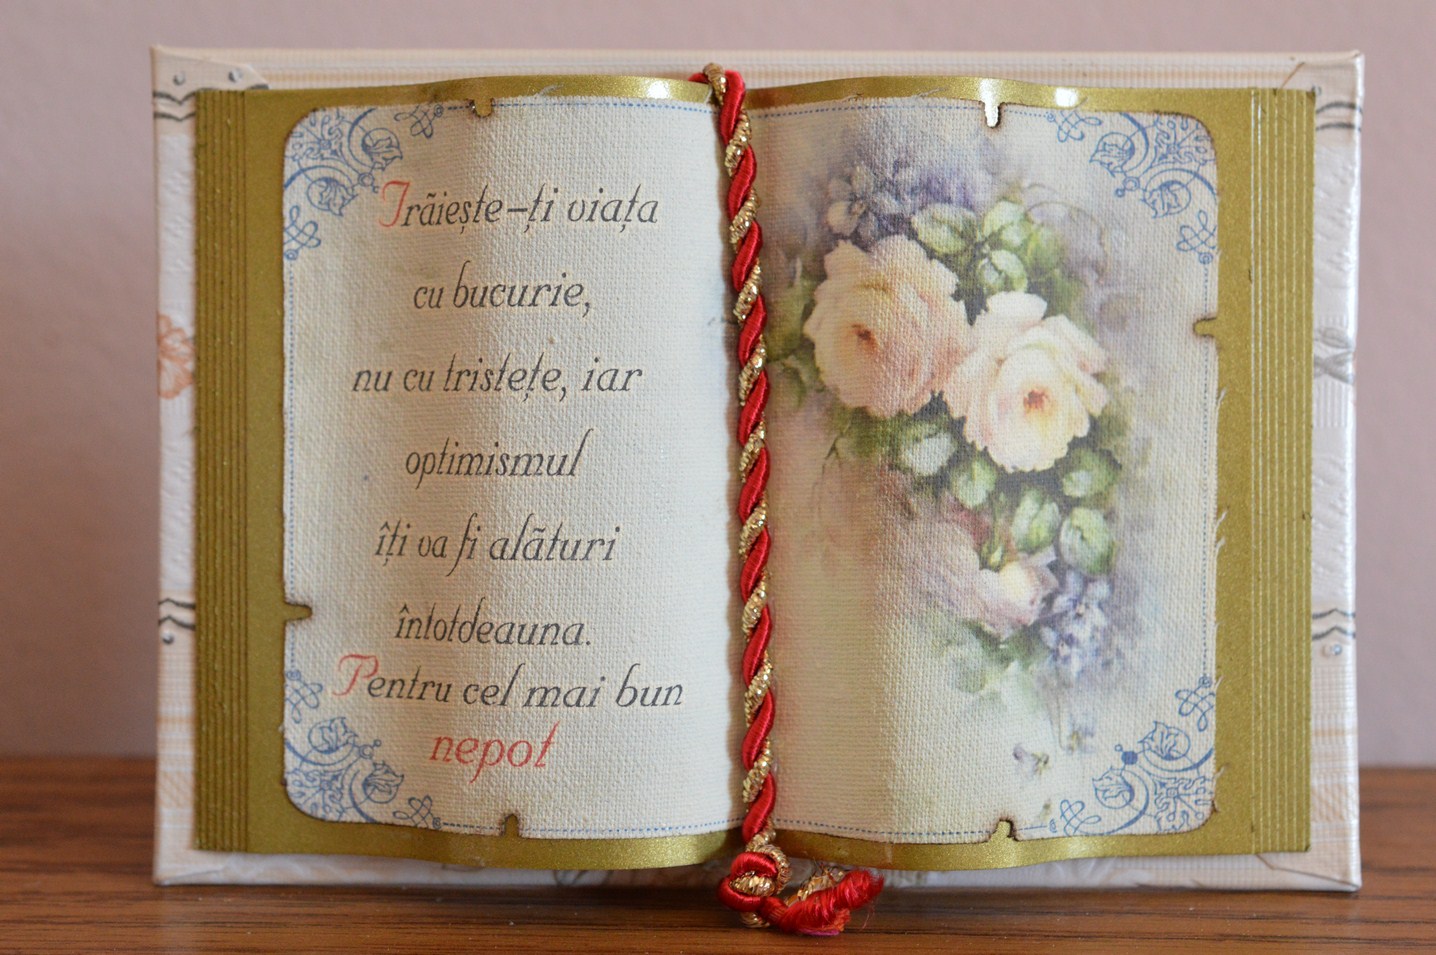 Trăiește-ți viața
cu bucurie,
nu cu tristețe, iar
optimismul
îți va fi alături
întotdeauna.
Pentru cel mai bun
nepot